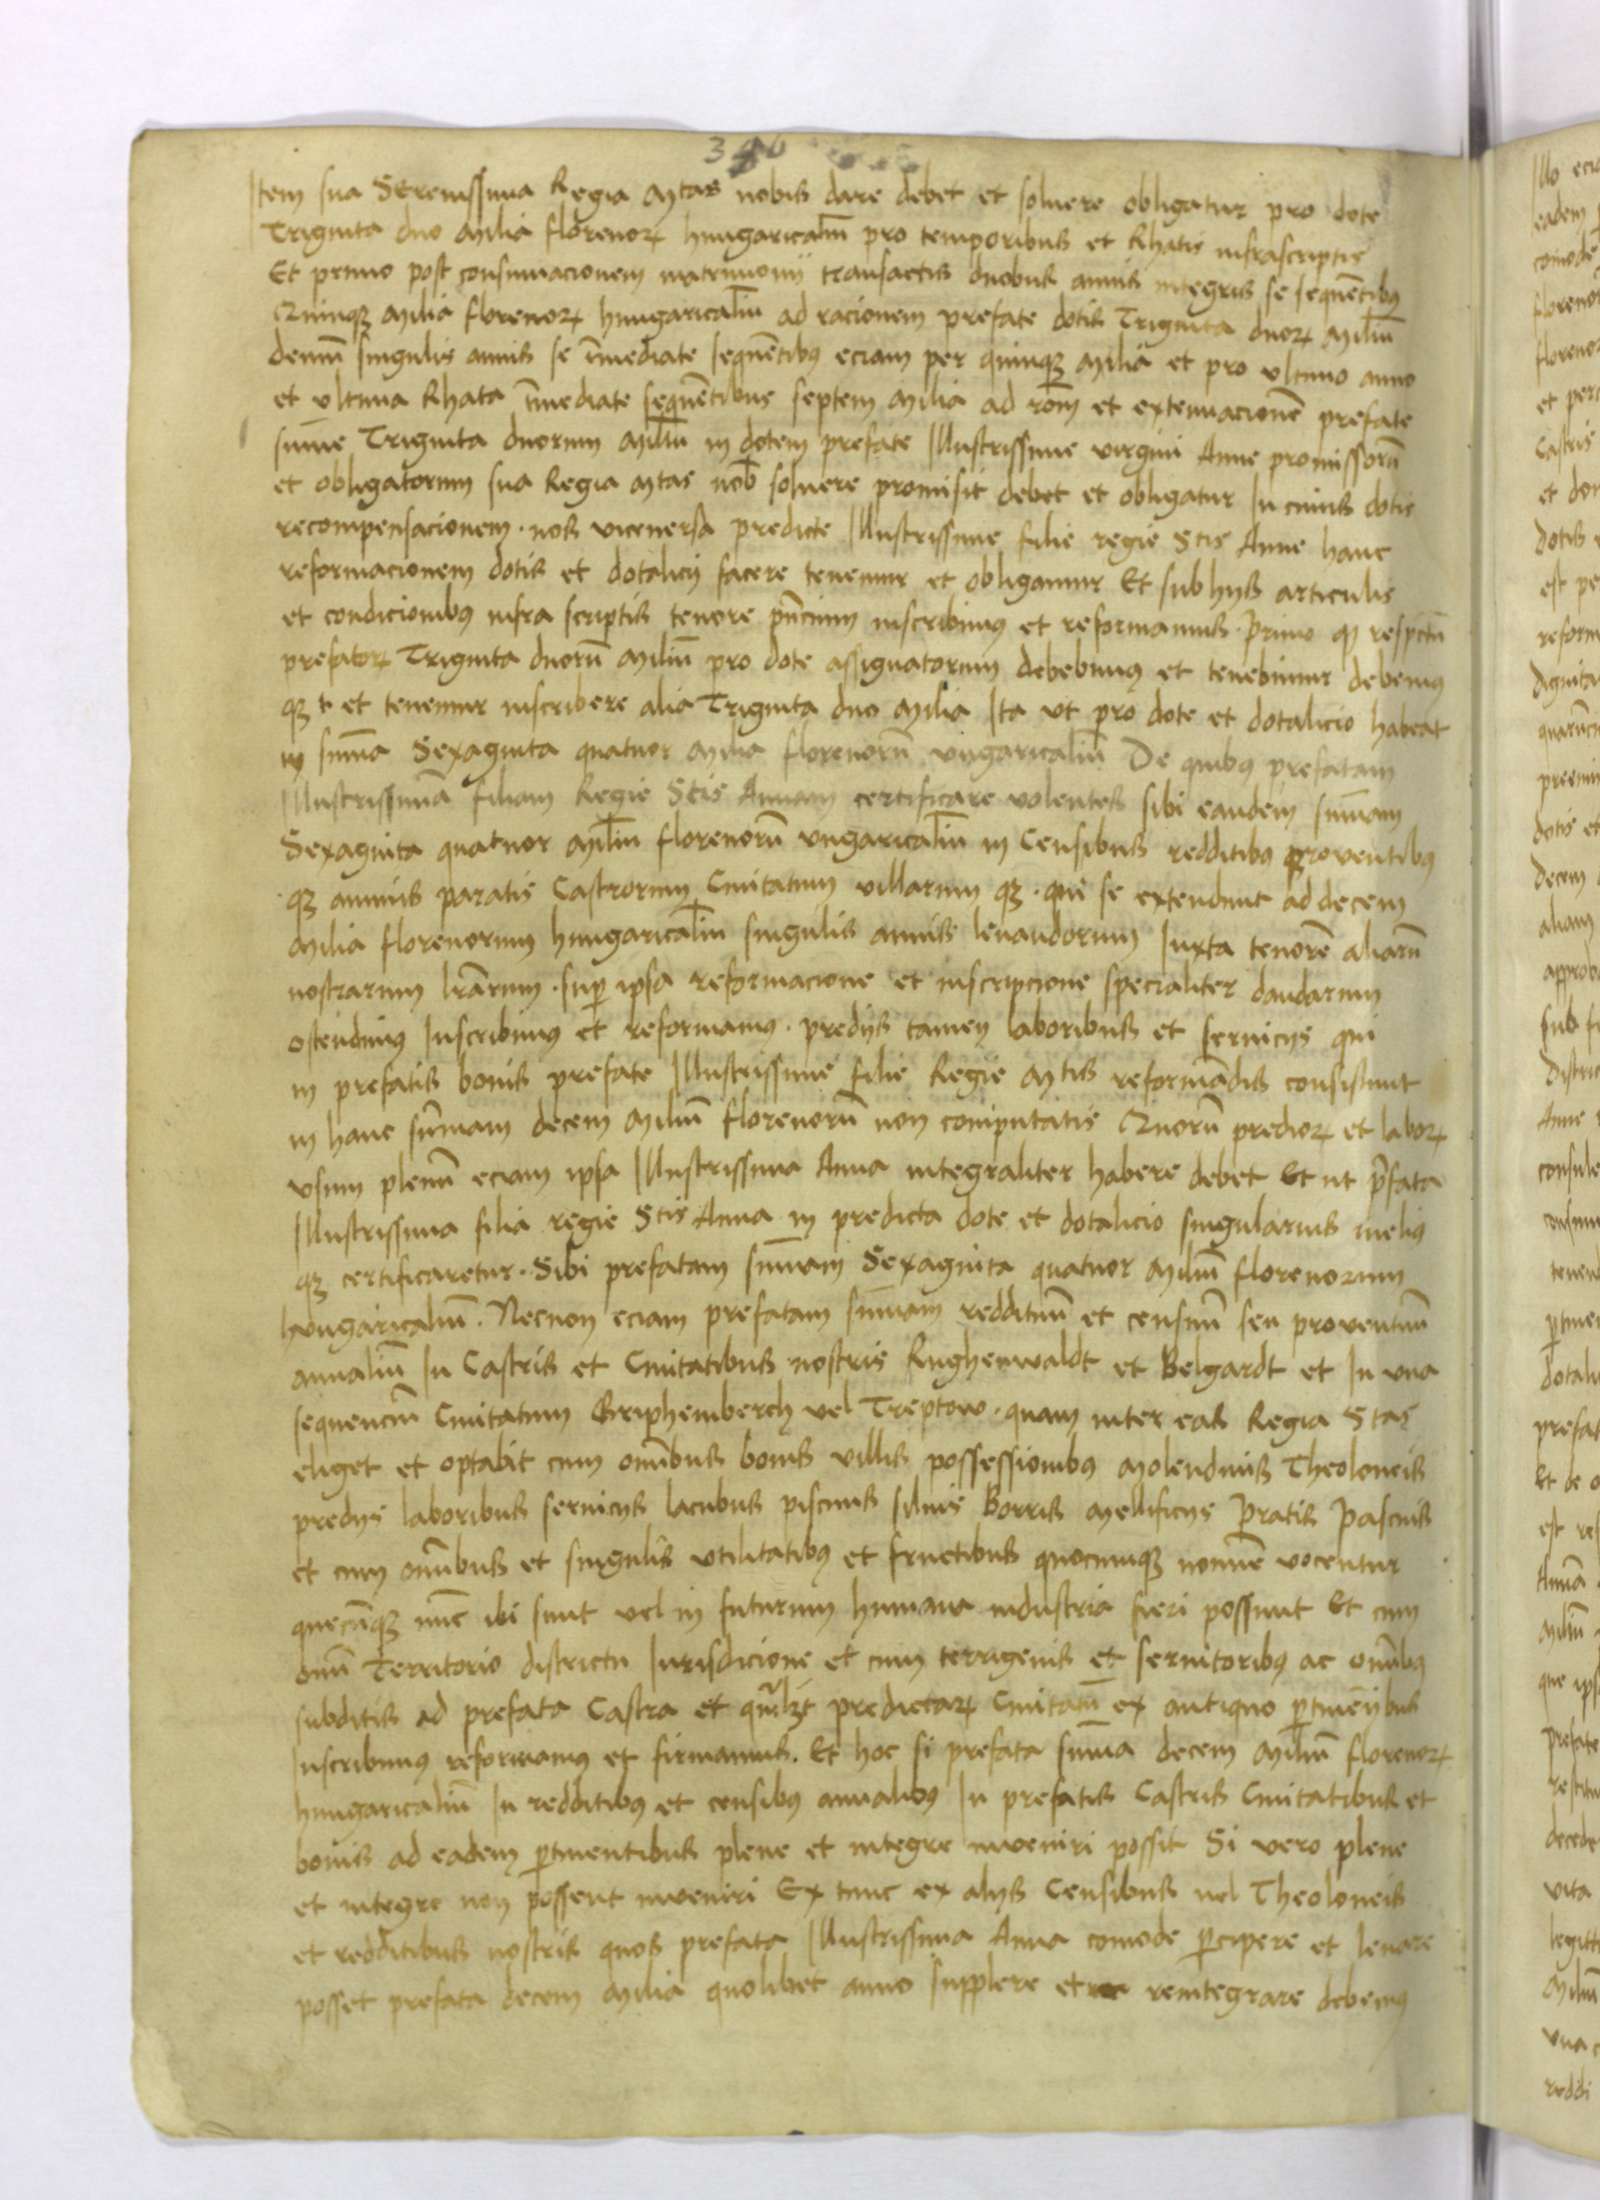 346
Item sua Serenissima Regia Mtas nobis dare debet et soluere obligatur pro dote
Triginta duo Milia florenoꝝ hungaricaliũ pro temporibus et Rhatis infrascriptis
Et primo post consumacionem matrimonij transactis duobus annis integris se sequẽtibꝰ
Quinqꝫ Milia florenoꝝ hungaricaliũ ad racionem prefate dotis Triginta duoꝝ Miliũ
demũ singulis annis se ĩmediate sequẽtibꝰ eciam per quinqꝫ Milia et pro vltimo anno
et vltima Rhata ĩmediate sequẽtibus septem Milia ad rõm et extenuacionẽ prefate
sum̃e Triginta duorum Miliũ in dotem prefate Illustrissime virgini Anne promissorũ
et obligatorum sua Regia Mtas nob̃ soluere promisit debet et obligatur In cuius dotis
recompensacionem · nos viceuersa predicte Illustrissime filie regie Stis Anne hanc
reformacionem dotis et dotalicij facere tenemur et obligamur Et sub hijs articulis
et condicionibꝰ infra scriptis tenore pñcium inscribimꝰ et reformamus · Primo qꝫ respectũ
prefatoꝝ Triginta duorũ Miliũ pro dote assignatorum debebimꝰ et tenebimur debemꝰ
qꝫ et tenemur inscribere alia Triginta duo Milia Ita vt pro dote et dotalicio habeat
in sum̃a Sexaginta quatuor Milia florenorũ vngaricaliũ De quibꝰ prefatam
Illustrissimã filiam Regie Stis Annam certificare volentes sibi eandem sum̃am
Sexaginta quatuor Miliũ florenorũ vngaricaliũ in Censibus redditibꝰ prouentibꝰ
qꝫ annuis paratis Castrorum Ciuitatum villarum qꝫ · que se extendunt ad decem
Milia florenorum hungaricaliũ singulis annis leuandorum Iuxta tenorẽ aliarũ
nostrarum lrãrum · suꝑ ipsa reformacione et inscripcione specialiter dandarum
ostendimꝰ Inscribimꝰ et reformamꝰ · predijs tamen laboribus et seruicijs qui
in prefatis bonis prefate Illustrissime filie Regie Mtis reformãdis consistunt
in hanc sum̃am decem Miliũ florenorũ non computatis Quorũ predioꝝ et laboꝝ
vsum plenũ eciam ipsa Illustrissima Anna integraliter habere debet Et ut p̃fata
Illustrissima filia regie Stis Anna in predicta dote et dotalicio singularius meliꝰ
qꝫ certificaretur · Sibi prefatam sum̃am Sexaginta quatuor Miliũ florenorum
hungaricaliũ · Necnon eciam prefatam sum̃am reddituũ et censuũ seu prouentuũ
annualiũ In Castris et Ciuitatibus nostris Rughenwaldt et Belgardt et In vna
sequenciũ Ciuitatum Griphemberch vel Treptow · quam inter eas Regia Stas
eliget et optabit cum om̃ibus bonis villis possessionibꝰ Molendinis Theoloneis
predijs laboribus seruicijs lacubus piscinis siluis Borris Mellificijs Pratis Pascuis
et cum om̃ibus et singulis vtilitatibꝰ et fructibus quocumqꝫ nomĩe vocentur
quecũqꝫ nũc ibi sunt vel in futurum humana industria fieri possunt Et cum
omñi Territorio districtu Iurisdicione et cum terrigenis et seruitoribꝰ ac om̃ibꝰ
subditis ad prefata Castra et predictaꝝ Ciuitatũ ex antiquo ꝑtinẽtibus
Inscribimꝰ reformamꝰ et firmamus. Et hoc si prefata sum̃a decem Miliũ florenoꝝ
hungaricaliũ In redditibꝰ et censibꝰ annualibꝰ In prefatis Castris Ciuitatibus et
bonis ad eadem ꝑtinentibus plene et integre inveniri possit Si vero plene
et integre non possent inveniri Ex tunc ex alijs Censibus uel Theoloneis
et redditibus nostris quos prefata Illustrissima Anna comode ꝑcipere et leuare
posset prefata decem Milia quolibet anno supplere et reintegrare debemꝰ